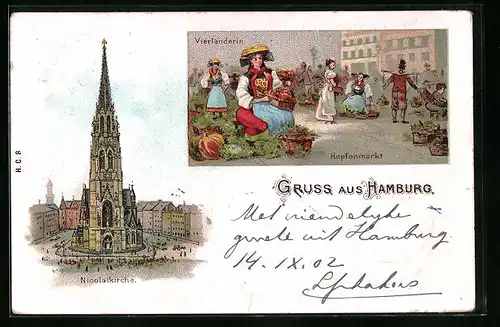 Vierländerin
Hopfenmarkt
H.C.8
GRUSS AUS HAMBURG.
Met vriendelyke
groete uit Hamburg
14. IX. 02
Nicolaikirche.